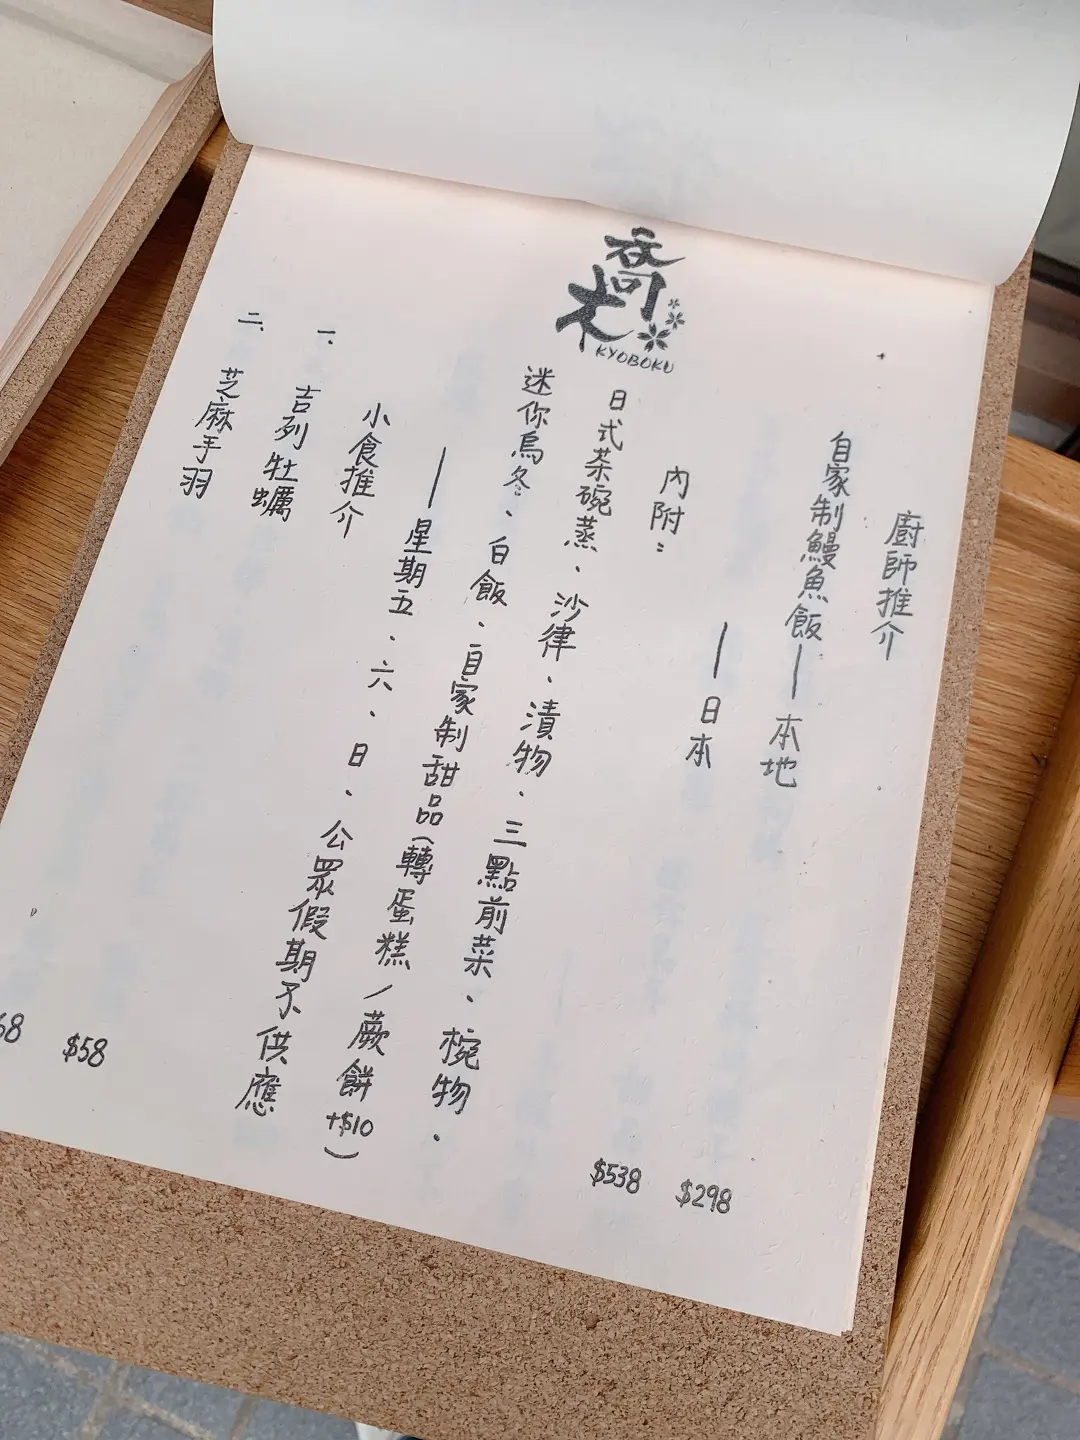 喬木
KYOBOKU
廚師推介
自家制鰻魚飯—本地 $298
—日本 $538
內附：
日式茶碗蒸、沙律、漬物、三點前菜、椀物、
迷你烏冬、白飯、自家制甜品(轉蛋糕/蕨餅+$10)
—星期五、六、日、公眾假期不供應
小食推介
一、吉列牡蠣 $58
二、芝麻手羽 68